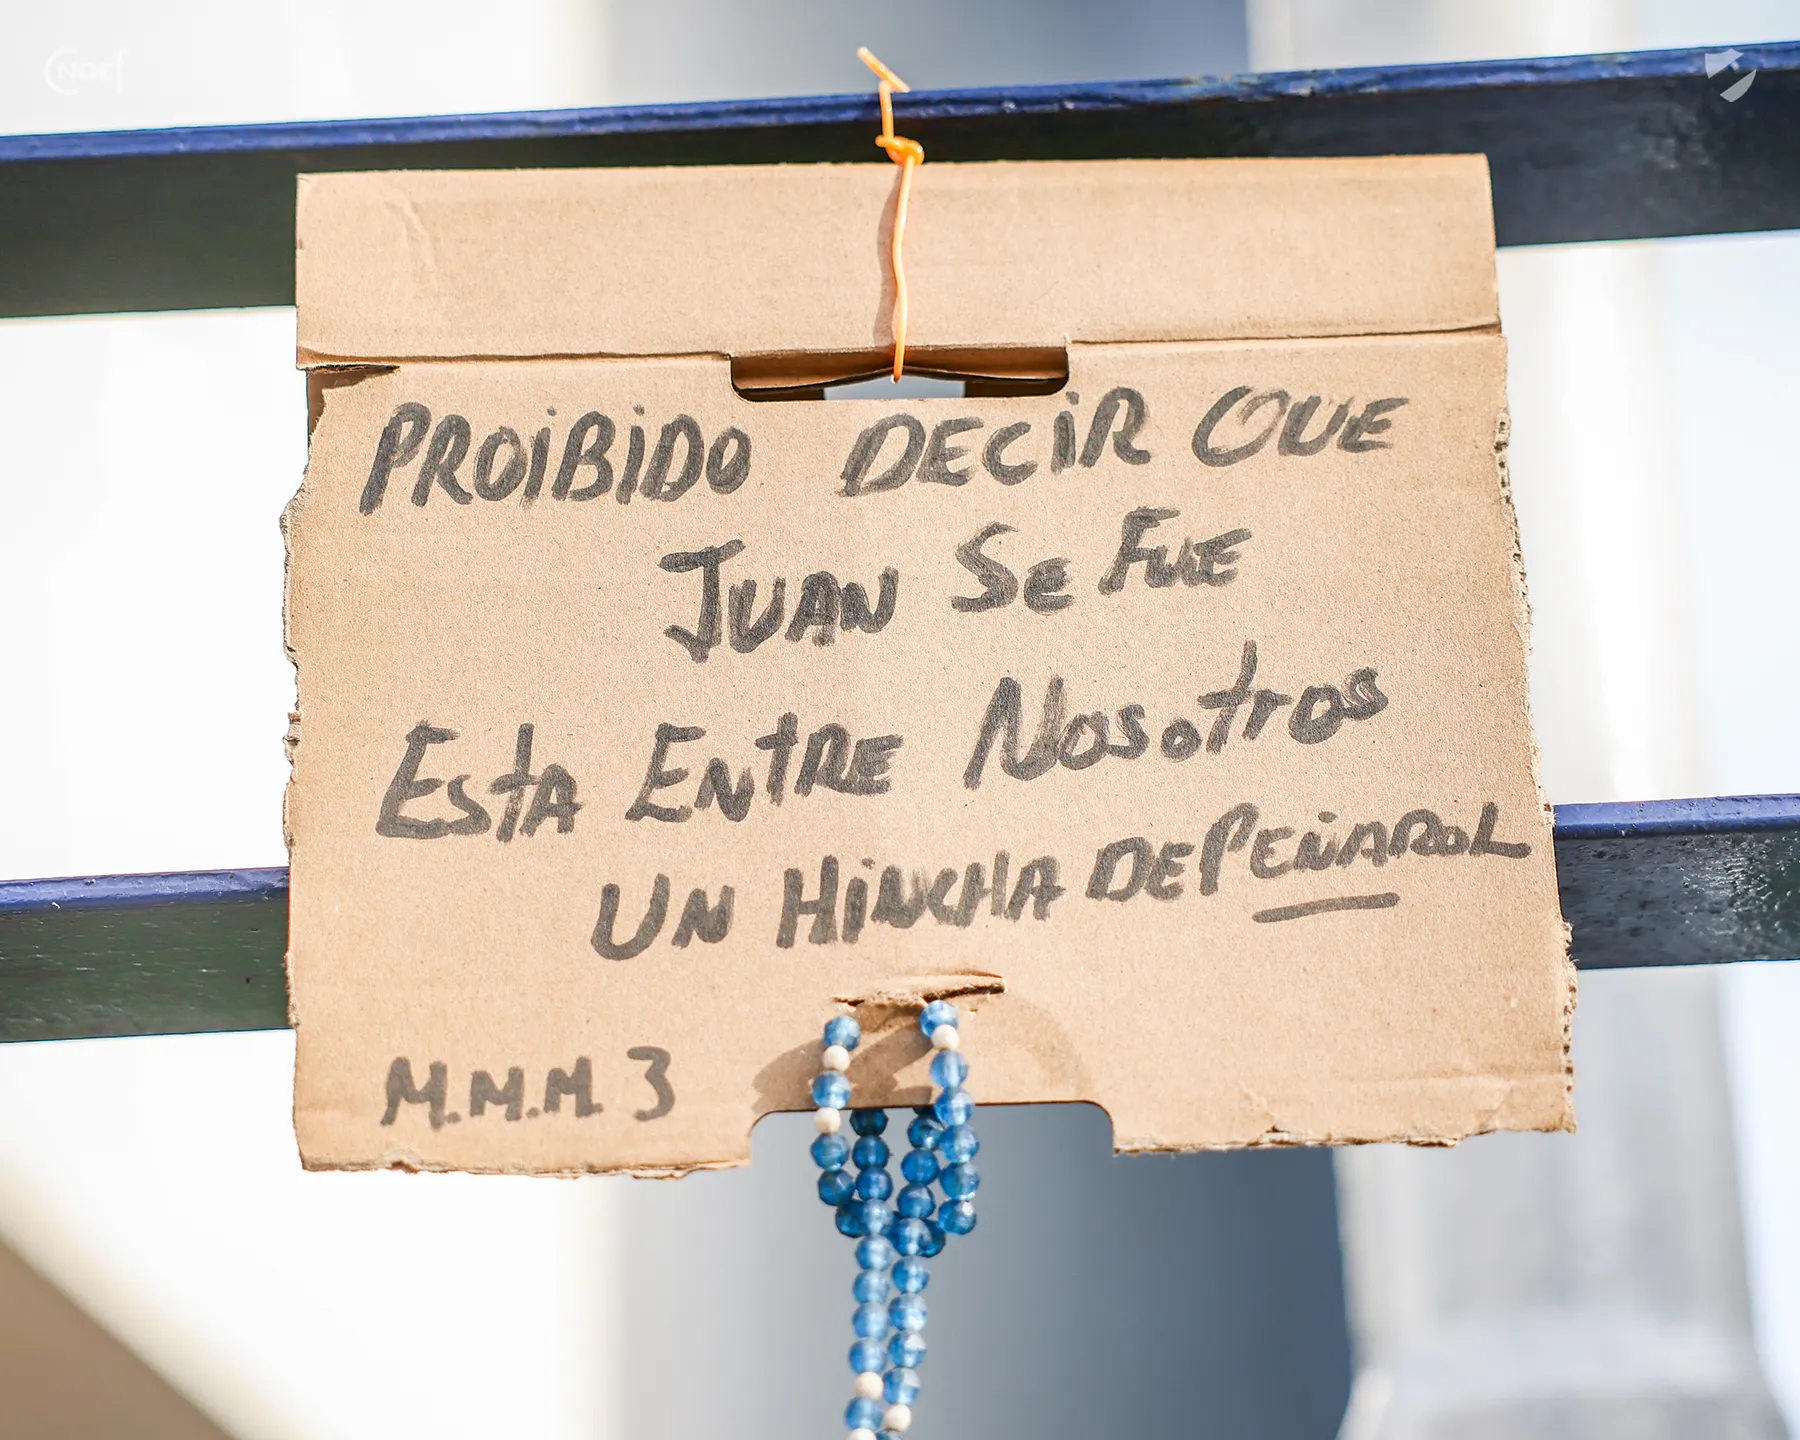 PROiBiDO DECiR QUE
JUAN Se FUE
EstA ENtRE Nosotros
UN HiNCHA DE PEÑAROL
M.M.M. 3